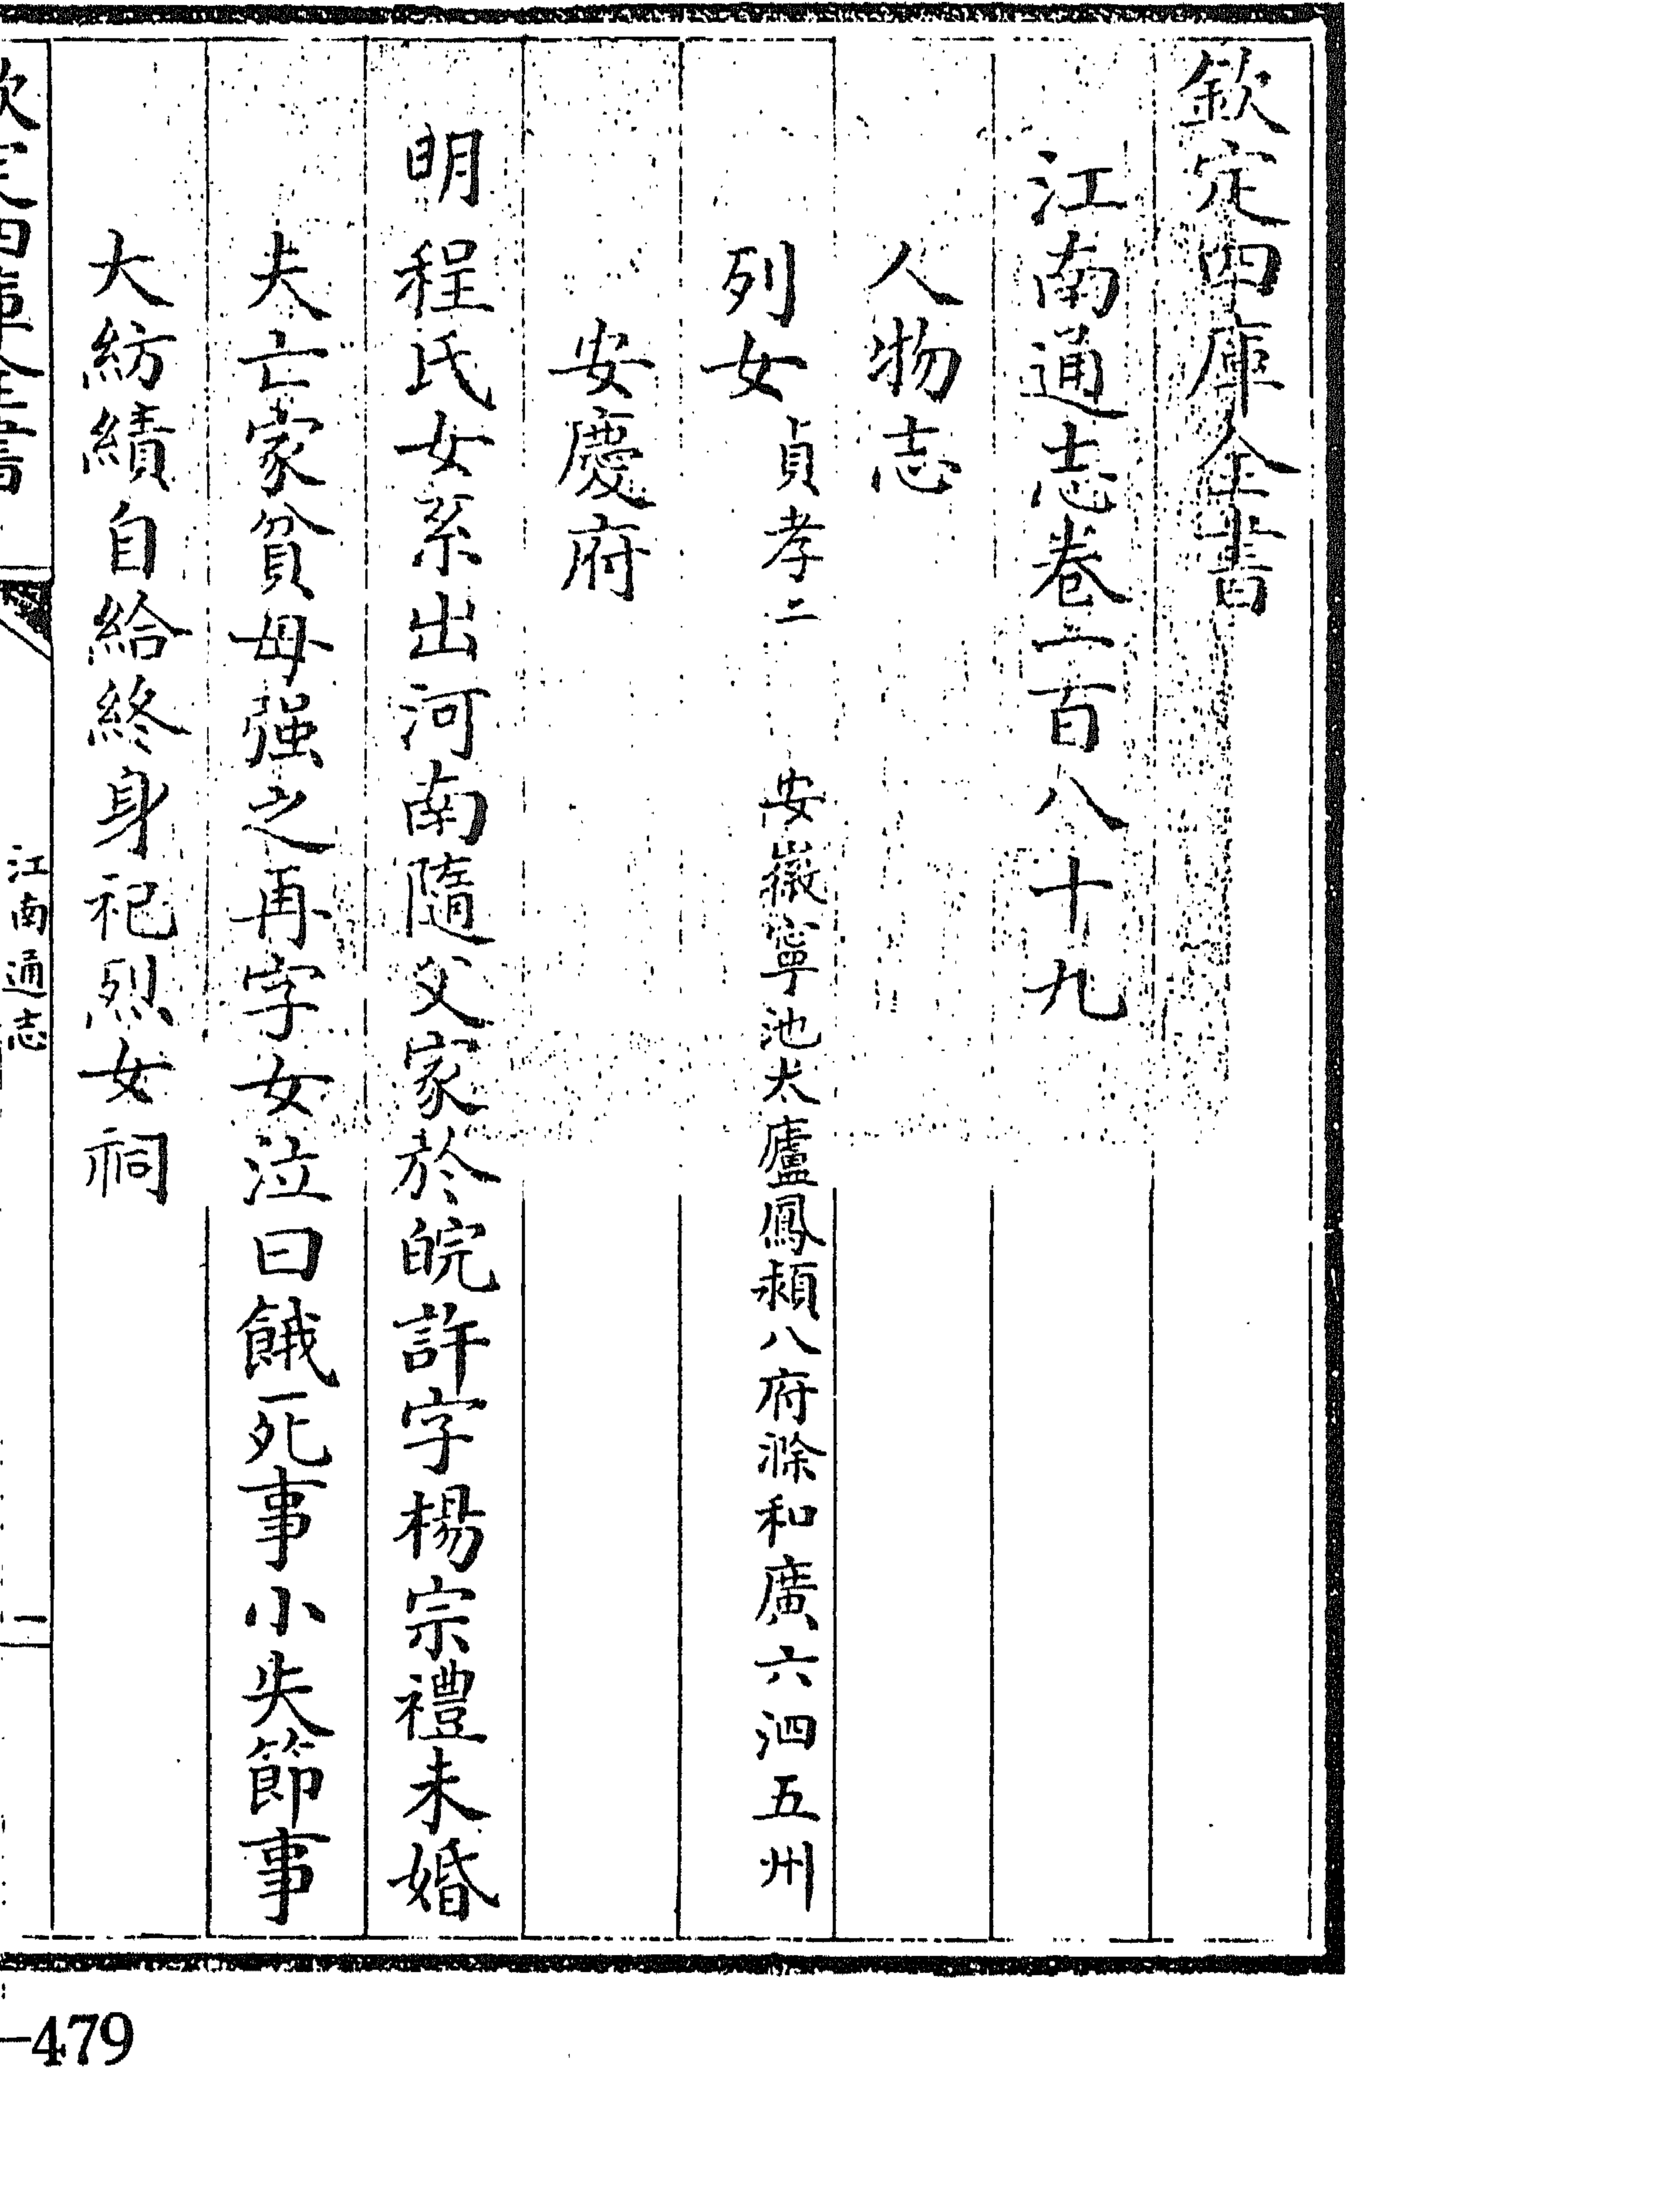 欽定四庫全書
江南通志卷一百八十九
人物志
列女貞孝二 安徽寧池太廬鳳潁八府滁和廣六泗五州
安慶府
明程氏女系出河南隨父家於皖許字楊宗禮未婚
夫亡家貧母强之再字女泣曰餓死事小失節事
大紡績自給終身祀烈女祠
欽定四庫全書
江南通志
一
-479